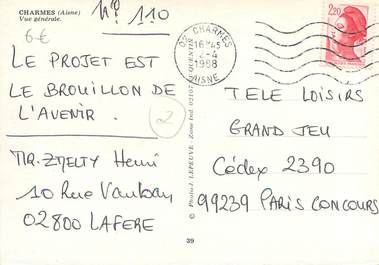 CHARMES (Aisne)
Vue générale.
N° 110
6€
LE PROJET EST
LE BROUILLON DE
L'AVENIR.
2
MR. ZMELTY Henri
10 Rue Vauban
02800 LAFERE
02 CHARMES
16H45
2-4
1988
AISNE
2,20
TELE LOISIRS
GRAND JEU
Cédex 2390
99239 PARIS CONCOURS
© Photo J. LEPEUVE - Zone Ind. 02107 ST-QUENTIN
39